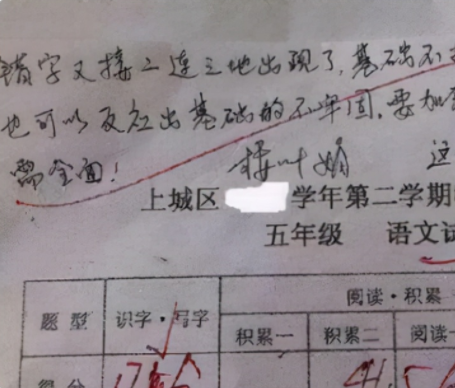 错字又接二连三地出现了,基础不
也可以反应出基础的不牢固,要加
需全面!
这
上城区 学年第二学期
五年级 语文试
题 型 识字·写字 阅读·积累
积累一 积累二 阅读一
得 分